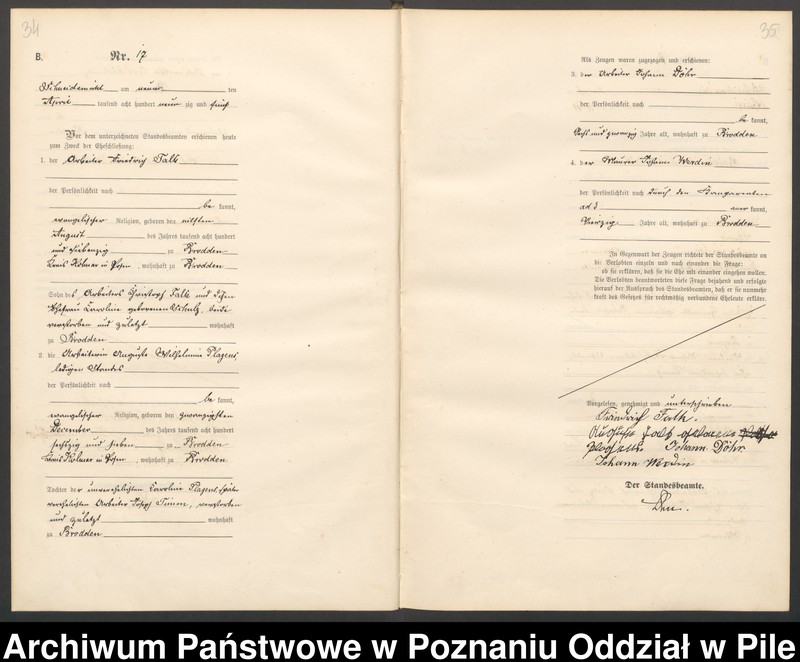 34
B.
Nr. 17
Schneidemühl am neun ten
April tausend acht hundert neun zig und fünf
Vor dem unterzeichneten Standesbeamten erschienen heute
zum Zweck der Eheschließung:
1. der Arbeiter Friedrich Falk
der Persönlichkeit nach
be kannt,
evangelischer Religion, geboren den elften
August des Jahres tausend acht hundert
und siebenzig zu Brodden
Kreis Kolmar in Posen, wohnhaft zu Brodden
Sohn des Arbeiters Christoph Falk und dessen
Ehefrau Caroline geborenen Schulz, beide
verstorben und zuletzt wohnhaft
zu Brodden
2. die Arbeiterin Auguste Wilhelmine Plagens
ledigen Standes
der Persönlichkeit nach
be kannt,
evangelischer Religion, geboren den zwanzigsten
December des Jahres tausend acht hundert
sechszig und sieben zu Brodden
Kreis Kolmar in Posen, wohnhaft zu Brodden
Tochter der unverehelichten Caroline Plagens später
verehelichten Arbeiter Joseph Timm, verstorben
und zuletzt wohnhaft
zu Brodden
35
Als Zeugen waren zugezogen und erschienen:
3. der Arbeiter Johann Döhr
der Persönlichkeit nach
be kannt,
sechs und zwanzig Jahre alt, wohnhaft zu Brodden
4. der Maurer Johann Merdin
der Persönlichkeit nach durch den
ad 3 aner kannt,
vierzig Jahre alt, wohnhaft zu Brodden
In Gegenwart der Zeugen richtete der Standesbeamte an
die Verlobten einzeln und nach einander die Frage:
ob sie erklären, daß sie die Ehe mit einander eingehen wollen.
Die Verlobten beantworteten diese Frage bejahend und erfolgte
hierauf der Ausspruch des Standesbeamten, daß er sie nunmehr
kraft des Gesetzes für rechtmäßig verbundene Eheleute erkläre.
Vorgelesen, genehmigt und unterschrieben
Friedrich Falk.
Auguste Falk geborene
Plagens Johann Döhr
Johann Merdin
Der Standesbeamte.
Archiwum Państwowe w Poznaniu Oddział w Pile